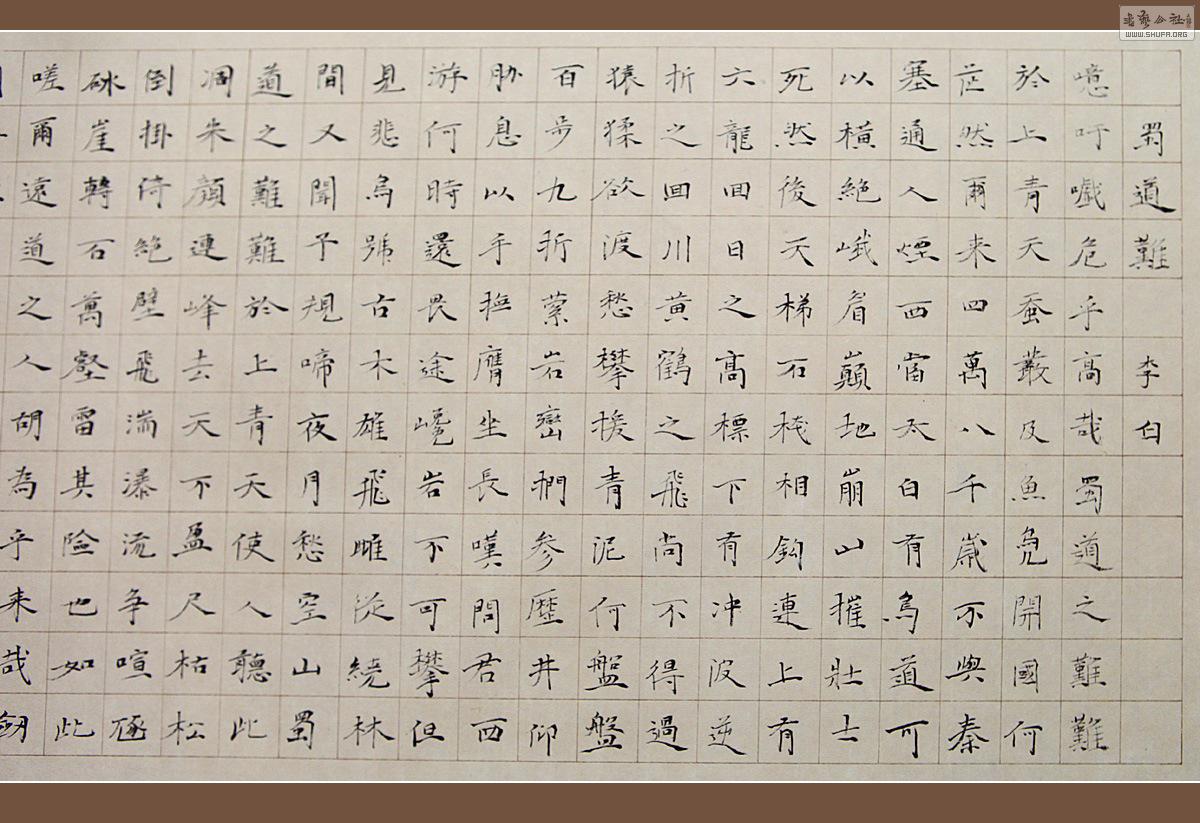 蜀道難 李白
噫吁嚱危乎高哉蜀道之難難
於上青天蚕叢及魚鳧開國何
茫然爾来四萬八千歲不與秦
塞通人煙西當太白有鳥道可
以橫絕峨眉巔地崩山摧壯士
死然後天梯石棧相鈎連上有
六龍回日之高標下有冲波逆
折之回川黃鶴之飛尚不得過
猿猱欲渡愁攀援青泥何盤盤
百步九折縈岩巒捫參歷井仰
胁息以手撫膺坐長嘆問君西
游何時還畏途巉岩不可攀但
見悲鳥號古木雄飛雌從繞林
間又聞子規啼夜月愁空山蜀
道之難難於上青天使人聽此
凋朱顏連峰去天不盈尺枯松
倒掛倚絕壁飛湍瀑流争喧豗
砯崖轉石萬壑雷其險也如此
嗟爾遠道之人胡為乎来哉劍
书艺公社
WWW.SHUFA.ORG